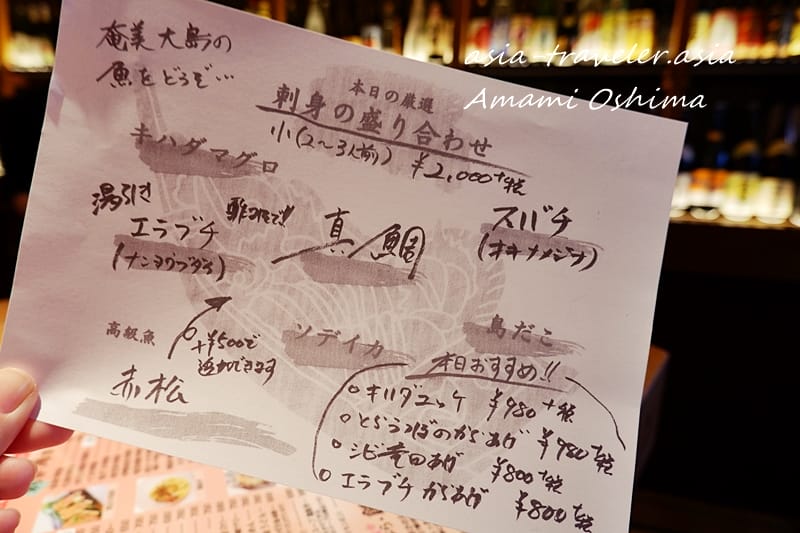 asia-traveler.asia
Amami Oshima
奄美大島の
魚をどうぞ…
本日の厳選
刺身の盛り合わせ
小(2〜3人前) ¥2,000+税
キハダマグロ
湯引き
エラブチ
(ナンヨウブダイ)
酢みそで!!
真鯛
スバチ
(オキナメジナ)
高級魚
+¥500で
追加できます
赤松
ソデイカ
島だこ
本日おすすめ!!
○キハダユッケ ¥980+税
○とらうつぼのからあげ ¥980+税
○シビ竜田あげ ¥800+税
○エラブチからあげ ¥800+税